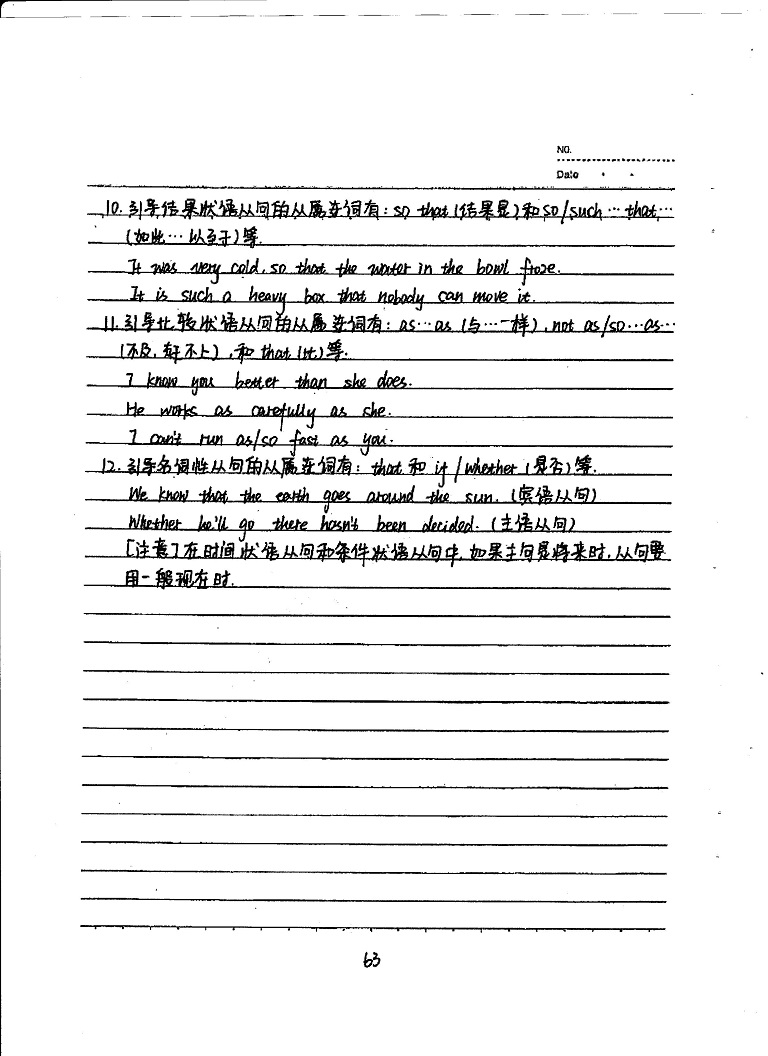 NO.
Date
10. 引导结果状语从句的从属连词有：so that (结果是) 和 so/such … that …
(如此… 以至于) 等.
It was very cold, so that the water in the bowl froze.
It is such a heavy box that nobody can move it.
11. 引导比较状语从句的从属连词有：as…as (与…一样), not as/so…as…
(不及, 好不上), 和 that (比) 等.
I know you better than she does.
He works as carefully as she.
I can't run as/so fast as you.
12. 引导名词性从句的从属连词有：that 和 if / whether (是否) 等.
We know that the earth goes around the sun. (宾语从句)
Whether he'll go there hasn't been decided. (主语从句)
[注意] 在时间状语从句和条件状语从句中, 如果主句是将来时, 从句要
用一般现在时.
63